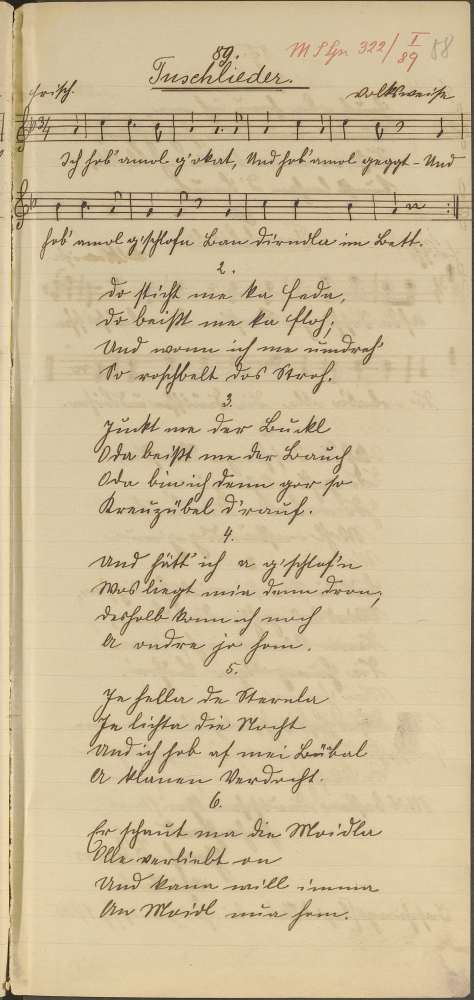 89.
M S Gr. 322/ I 89 88
Tuschlieder.
frisch. Volksweise
Ich hob' amol g'okat, Und hob' amol geggt - Und
hob' amol g'schlofn Ban Dirndla im Bett.
2.
Do sticht me ka Feda,
Do beißt me ka Floh;
Und wonn ich me umdreh'
So roschbelt dos Stroh.
3.
Juckt me der Buckl
Oda beißt me der Bauch
Oda bin ich denn gor so
Kreuzübel d'rauf.
4.
Und hätt' ich a g'schlof'n
Wos liegt mia denn dron;
Desholb konn ich noch
A ondre jo hom.
5.
Je hella de Sternla
Je lichta die Nocht
Und ich hob af mei Bübal
A klanen Verdocht.
6.
Er schaut ma die Moidla
Olle verliebt on
Und kana will imma
An Moidl nua hom.